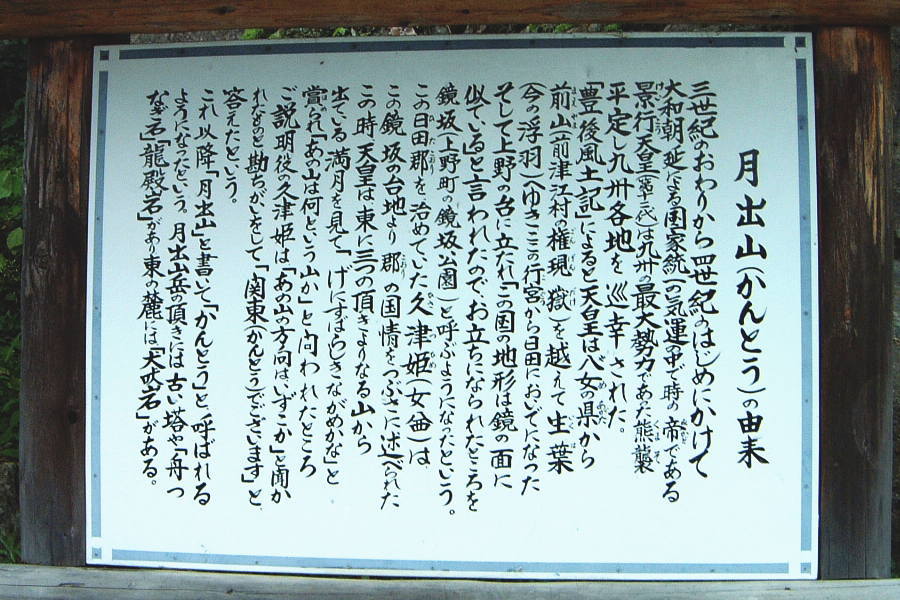 月出山(かんとう)の由来
三世紀のおわりから四世紀のはじめにかけて
大和朝廷による国家統一の気運の中で時の帝である
景行天皇(第十二代)は九州の最大勢力であった熊襲
平定し九州各地を巡幸された。
「豊後風土記」によると天皇は八女の県から
前山(前津江村の権現嶽)を越えて生葉
(今の浮羽)(ゆきここの行宮から日田においでになった
そして上野の台に立たれ「この国の地形は鏡の面に
似ている」と言われたので、お立ちになられたところを
鏡坂(上野町の鏡坂公園)と呼ぶようになったという。
この日田郡を治めていた久津姫(女酋)は
この鏡坂の台地より郡の国情をつぶさに述べられた
この時天皇は東に三つの頂きよりなる山から
出ている満月を見て「げにすばらしきながめかな」と
賞られ「あの山は何という山か」と問われたところ
ご説明役の久津姫は「あの山の方向はいずこか」と聞か
れたものと勘ちがいをして「関東(かんとう)でございます」と
答えたという。
これ以降「月出山」と書いて「かんとう」と呼ばれる
ようになったという。月出山岳の頂きには古い塔や「舟つ
なぎ石」「龍殿岩」があり東の麓には「犬吠岩」がある。